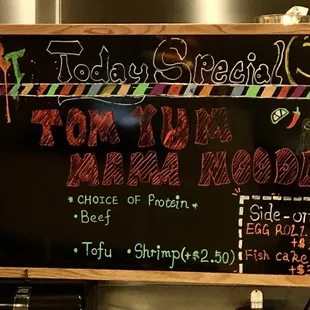 Today Special
TOM YUM
MAMA NOOD
* CHOICE OF Protein *
• Beef
• Tofu • Shrimp(+$2.50)
Side-or
EGG ROLL
+$
Fish cake
+$